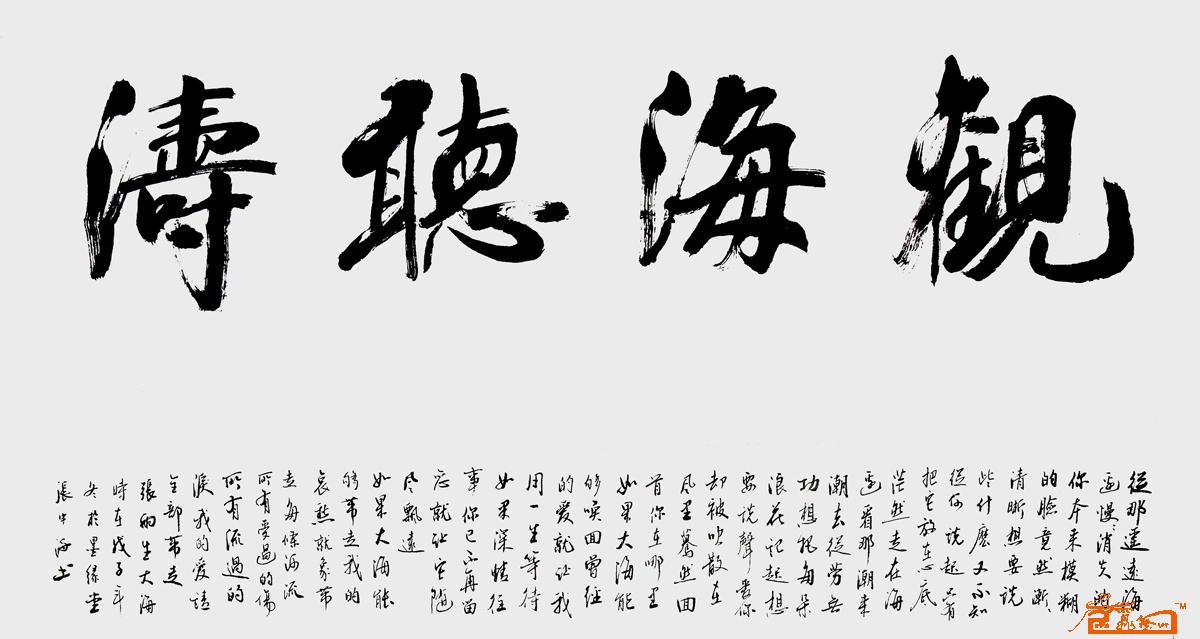 觀海聽濤
從那遥遠海
邊慢消失的
你本来模糊
的臉竟然漸
清晰想要说
些什麽又不知
從何说起只有
把它放在心底
茫然走在海
邊看那潮来
潮去徒劳无
功想把每朵
浪花记起想
要说聲爱你
却被吹散在
风里驀然回
首你在哪里
如果大海能
够唤回曾經
的爱就让我
用一生等待
如果深情往
事你已不再留
恋就让它随
风飘遠
如果大海能
够带走我的
哀愁就象带
走每條河流
所有受過的傷
所有流過的
淚我的爱请
全部带走
張雨生大海
時在戊子年
冬於墨缘堂
張 海书